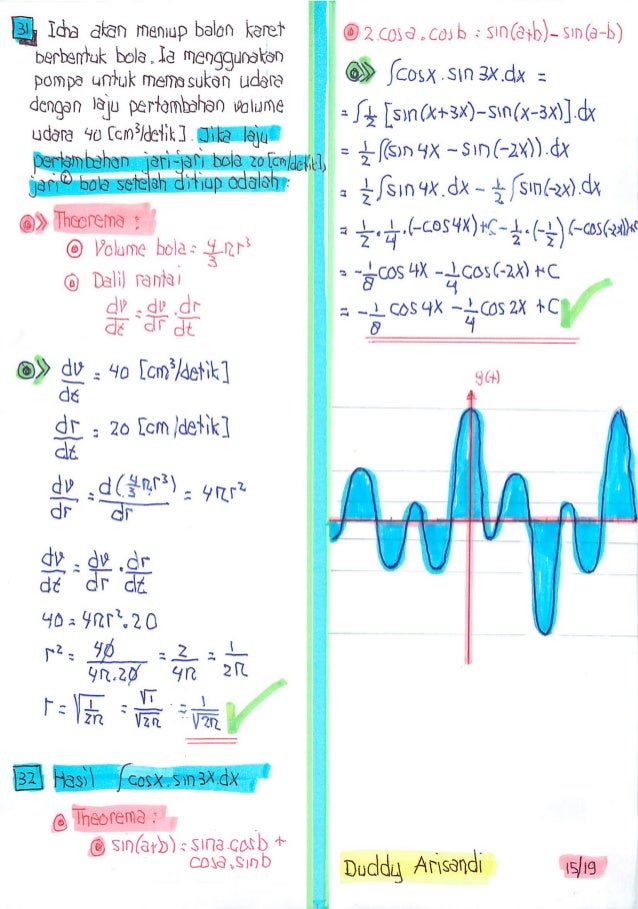 31 Icha akan meniup balon karet
berbentuk bola. Ia menggunakan
pompa untuk memasukan udara
dengan laju pertambahan volume
udara 40 [cm³/detik]. Jika laju
pertambahan jari-jari bola 20 [cm/detik],
jari² bola setelah ditiup adalah:
Theorema :
Volume bola = 4/3 πr³
Dalil rantai
dv/dt = dv/dr . dr/dt
dv/dt = 40 [cm³/detik]
dr/dt = 20 [cm/detik]
dv/dr = d(4/3 πr³)/dr = 4πr²
dv/dt = dv/dr . dr/dt
40 = 4πr².20
r² = 40/4π.20 = 2/4π = 1/2π
r = √1/2π = √1/√2π = 1/√2π
32 Hasil ∫cosx.sin3x.dx
Theorema :
sin(a+b) = sina.cosb +
cosa.sinb
2.cosa.cosb = sin(a+b)-sin(a-b)
∫cosx.sin 3x.dx =
= ∫1/2 [sin(x+3x)-sin(x-3x)].dx
= 1/2 ∫(sin 4x - sin(-2x)).dx
= 1/2 ∫sin 4x.dx - 1/2 ∫sin(-2x).dx
= 1/2 . 1/4 .(-cos4x)+C - 1/2 .(-1/2)(-cos(-2x))+C
= -1/8 cos 4x - 1/4 cos(-2x)+C
= -1/8 cos 4x - 1/4 cos 2x +C
y(t)
Duddy Arisandi
15/19